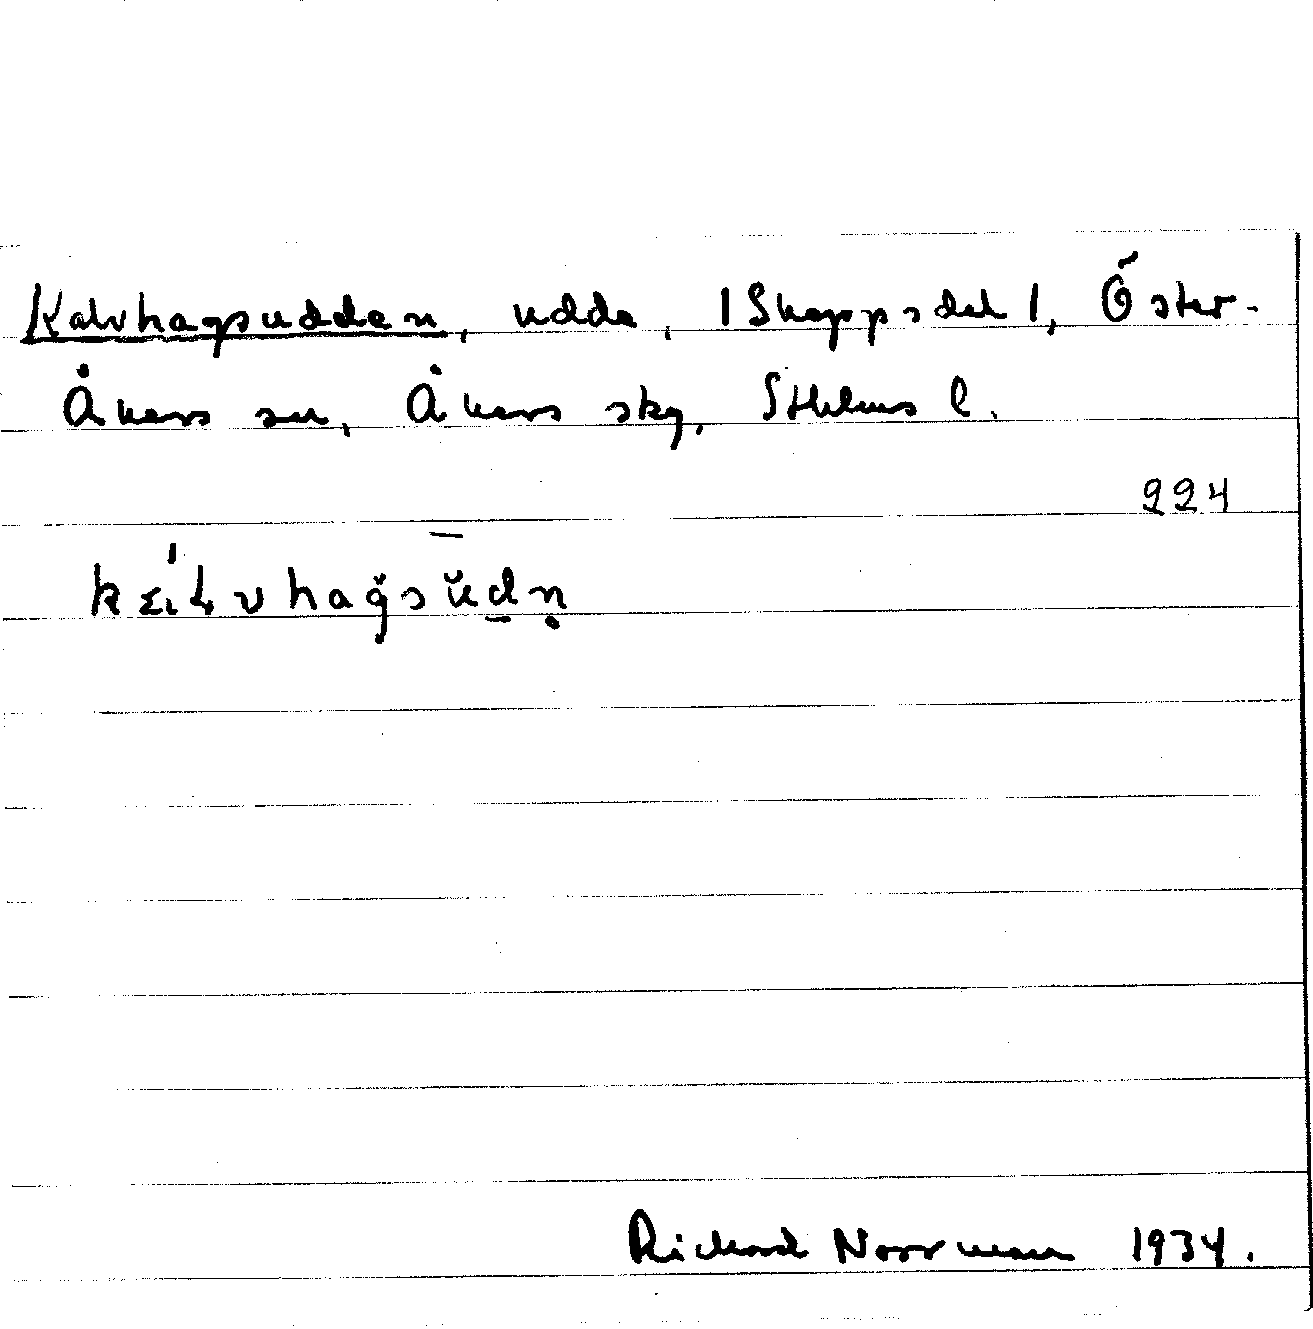 Kalvhagsudden, udda, | Skeppsdal |, Öster-
Åkers sn, Åkers skg, Sthlms l.
224
Rickard Noorman 1934.